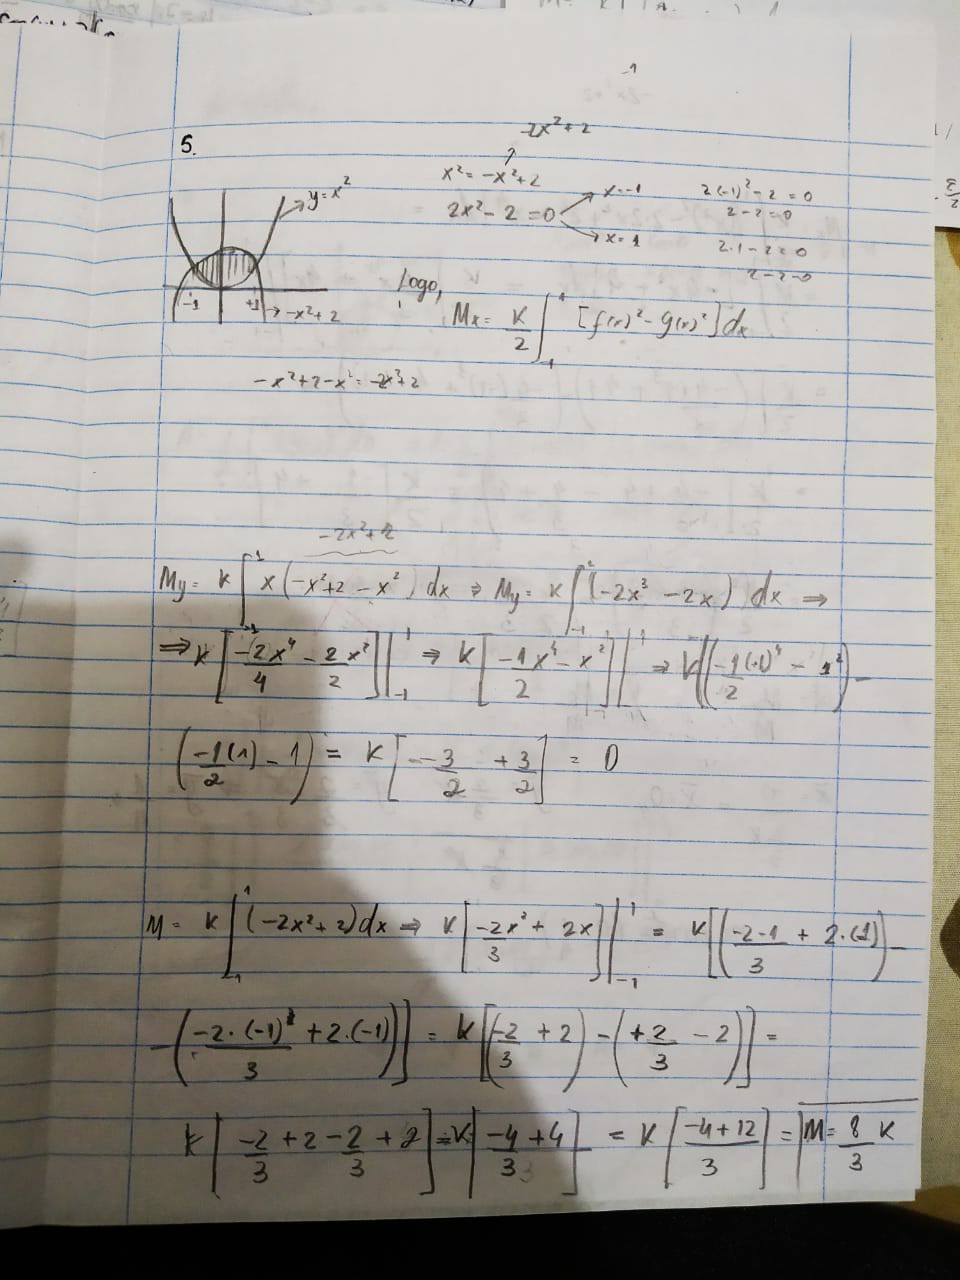 5.
-2x²+2
x² = -x²+2
2x² - 2 = 0
x = -1
x = 1
2(-1)² - 2 = 0
2 - 2 = 0
2·1 - 2 = 0
2 - 2 = 0
y = x²
-1 +1
→ -x²+2
Logo,
Mx = K/2 ∫₋₁¹ [f(x)² - g(x)²] dx
-x²+2-x² = -2x²+2
-2x²+2
My = K ∫₋₁¹ x(-x²+2 - x²) dx ⇒ My = K ∫₋₁¹ (-2x³ - 2x) dx ⇒
⇒ K [-2x⁴/4 - 2x²/2] |₋₁¹ ⇒ K [-1x⁴/2 - x²] |₋₁¹ ⇒ K[(-1(1)⁴/2 - 1²) -
(-1(1)/2 - 1) = K [-3/2 + 3/2] = 0
M = K ∫₋₁¹ (-2x²+2) dx ⇒ K [-2x³/3 + 2x] |₋₁¹ = K [(-2·1/3 + 2·(1)) -
-(-2·(-1)³/3 + 2·(-1))] = K [(-2/3 + 2) - (+2/3 - 2)] =
K [-2/3 + 2 - 2/3 + 2] = K [-4/3 + 4] = K [-4+12/3] = M = 8/3 K